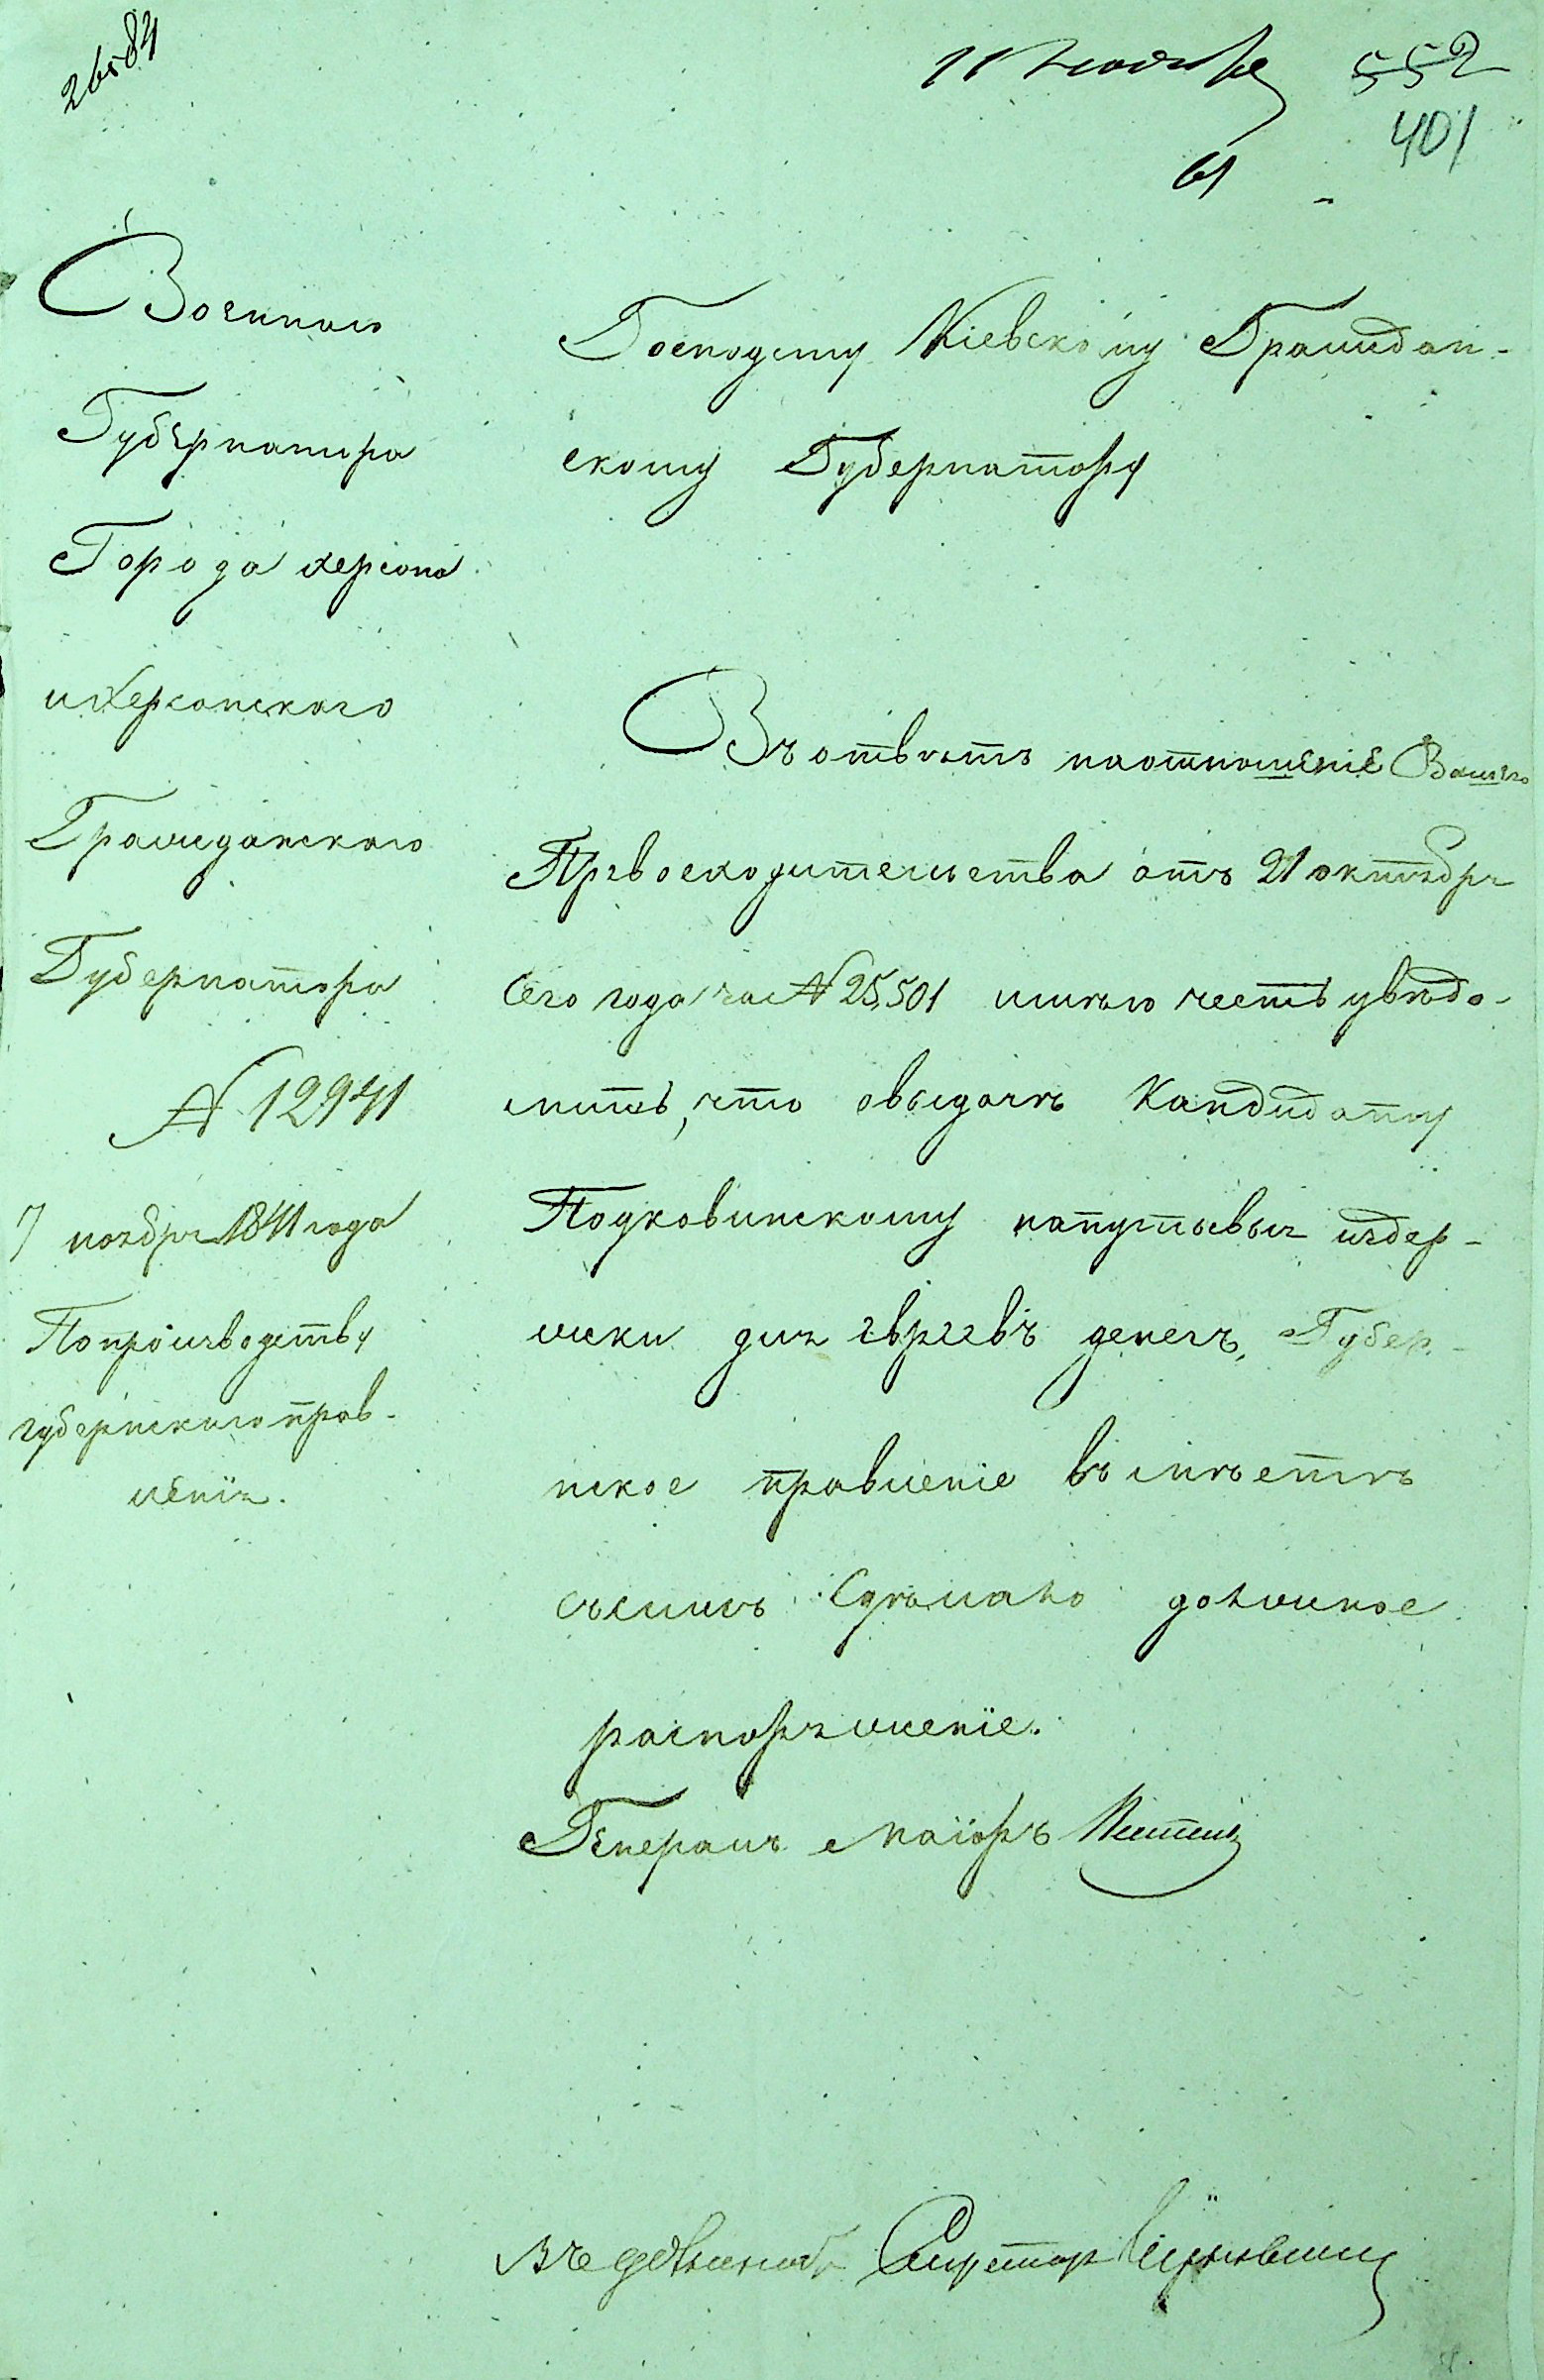 26584
11 Ноября 552
401
61
Военнаго
Губернатора
Города Херсона
и Херсонскаго
Гражданскаго
Губернатора
N 12941
7 ноября 1841 года
По производству
губернскаго прав-
ленія.
Господину Кіевскому Граждан-
скому Губернатору
Въ ответъ на отношеніе Вашего
Превосходительства отъ 21 октября
Сего года за N 25,501 имѣю честь увѣдо-
мить, что о выдачѣ Кандидату
Подковинскому на путевыя издер-
жки для евреевъ денегъ, Губер-
нское правленіе вмѣстѣ
съ симъ Сдѣлано должное
распоряженіе.
Генералъ Маіоръ
Секретарь